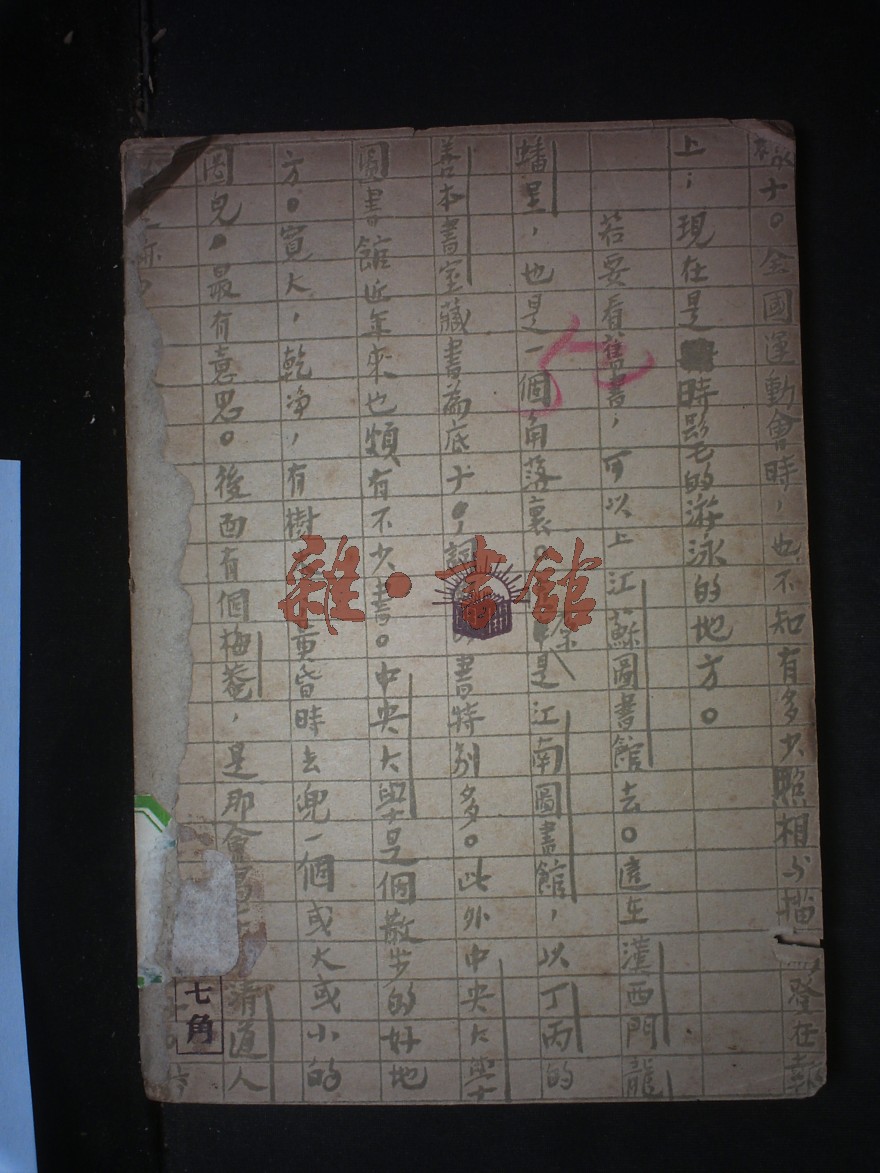 十。全國運動會時，也不知有多少照相與描 登在報
上；現在是 時髦的游泳的地方。
若要看舊書，可以上江蘇圖書館去。這在漢西門龍
蟠里，也是一個角落裏。 是江南圖書館，以丁丙的
善本書室藏書為底子；詞 書特別多。此外中央大學
圖書館近年來也頗有不少書。中央大學是個散步的好地
方。寬大，乾淨，有樹 黃昏時去兜一個或大或小的
圈兒，最有意思。後面有個梅菴，是那會寫 清道人
雜·書館
七角